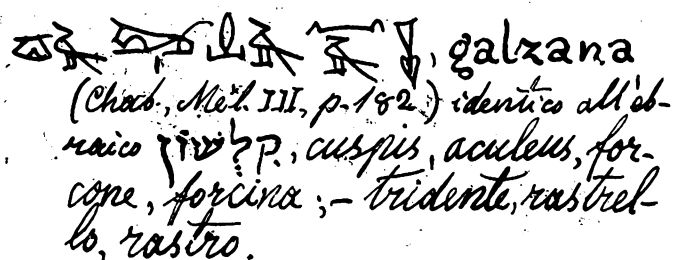 galzana
(Chab., Mél. III, p. 182) identico all'eb-
raico קִלְּשׁוֹן, cuspis, aculeus, for-
cone, forcina; – tridente, rastrel-
lo, rastro.